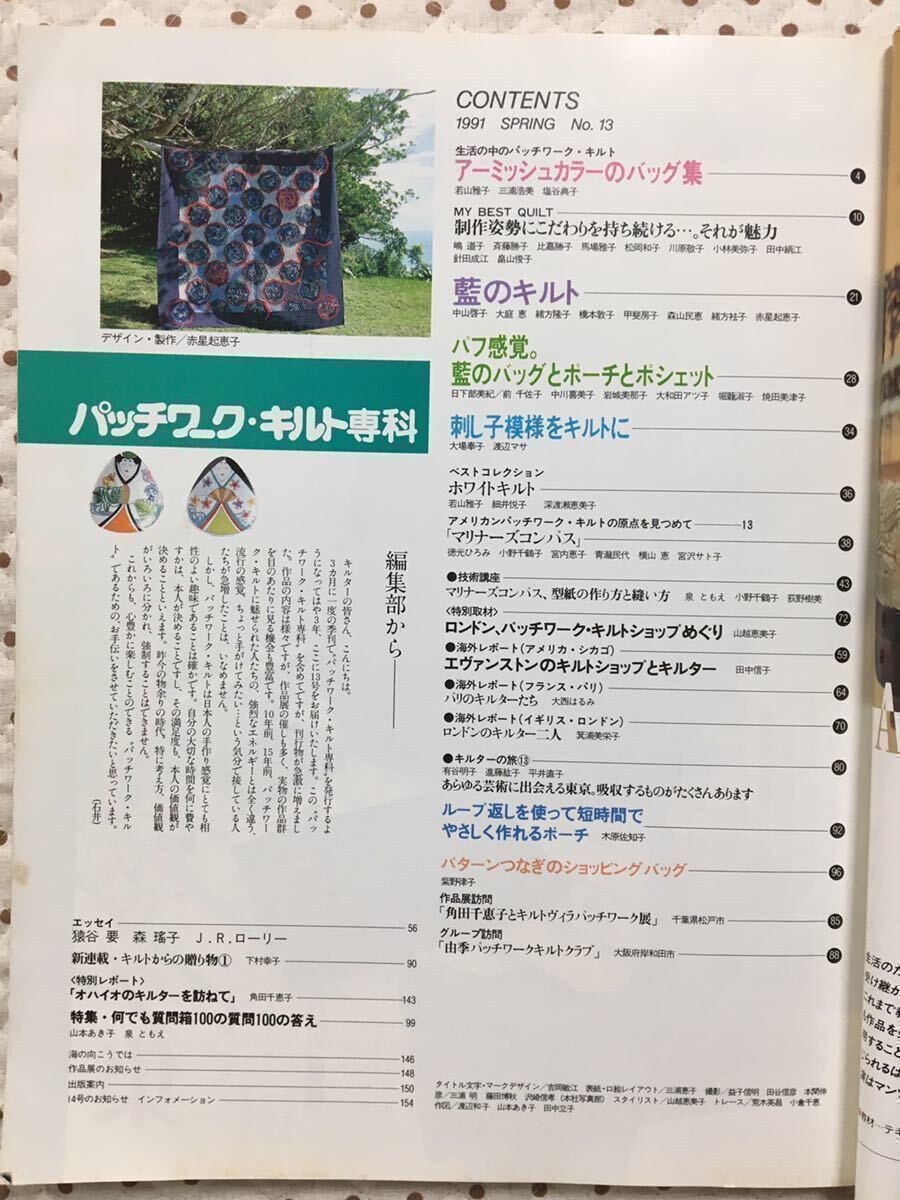 CONTENTS
1991 SPRING No. 13
生活の中のパッチワーク・キルト
アーミッシュカラーのバッグ集 4
若山雅子 三浦浩美 塩谷典子
MY BEST QUILT 10
制作姿勢にこだわりを持ち続ける…。それが魅力
嶋 道子 斉藤勝子 比嘉勝子 馬場雅子 松岡和子 川原敬子 小林美弥子 田中絹江
針田成江 畠山俊子
藍のキルト 21
中山啓子 大庭 恵 緒方隆子 橋本敦子 甲斐房子 森山民恵 緒方祛子 赤星起恵子
パフ感覚。
藍のバッグとポーチとポシェット 28
日下部美紀/前 千佐子 中川喜美子 岩城美那子 大和田アツ子 堀籠淑子 焼田美津子
刺し子模様をキルトに 34
大場奉子 渡辺マサ
ベストコレクション
ホワイトキルト 36
若山雅子 細井悦子 深渡瀬恵美子
アメリカンパッチワーク・キルトの原点を見つめて 13
「マリナーズコンパス」 38
徳光ひろみ 小野千鶴子 宮内恵子 青瀧民代 横山 恵 宮沢サト子
●技術講座 43
マリナーズコンパス、型紙の作り方と縫い方 泉 ともえ 小野千鶴子 荻野樹美
〈特別取材〉 72
ロンドン、パッチワーク・キルトショップめぐり 山越恵美子
●海外レポート(アメリカ・シカゴ) 59
エヴァンストンのキルトショップとキルター 田中信子
●海外レポート(フランス・パリ) 64
パリのキルターたち 大西はるみ
●海外レポート(イギリス・ロンドン) 70
ロンドンのキルター二人 箕浦美栄子
●キルターの旅⑬ 80
有谷明子 進藤紘子 平井直子
あらゆる芸術に出会える東京。吸収するものがたくさんあります
ループ返しを使って短時間で
やさしく作れるポーチ 木原佐知子 92
パターンつなぎのショッピングバッグ 96
紫野律子
作品展訪問
「角田千恵子とキルトヴィラパッチワーク展」 千葉県松戸市 85
グループ訪問
「由季パッチワークキルトクラブ」 大阪府岸和田市 88
デザイン・製作/赤星起恵子
パッチワーク・キルト専科
編集部から
キルターの皆さん、こんにちは。
3カ月に一度の季刊で〝パッチワーク・キルト専科〟を発行するよ
うになってはや3年、ここに13号をお届けいたします。この〝パッ
チワーク・キルト専科〟を含めてですが、刊行物が急激に増えまし
た。作品の内容は様々ですが、作品展の催しも多く、実物の作品群
を目のあたりに見る機会も豊富です。10年前、15年前、パッチワー
ク・キルトに魅せられた人たちの、強烈なエネルギーとは全く違う、
流行の感覚、ちょっと手がけてみたい…という気分で接している人
たちが急増したことは、いなめません。
しかし、パッチワーク・キルトは日本人の手作り感覚にとても相
性のよい趣味であることは確かです。自分の大切な時間を何に費や
すかは、本人が決めることですし、その満足度も、本人の価値観が
決めることといえます。昨今の物余りの時代、特に考え方、価値観
がいろいろに分かれ、強制することはできません。
これからも、心豊かに楽しむことのできる〝パッチワーク・キル
ト〟であるための、お手伝いをさせていただきたいと思っています。
(石井)
エッセイ 56
猿谷 要 森 瑤子 J.R.ローリー
新連載・キルトからの贈り物① 下村幸子 90
〈特別レポート〉
「オハイオのキルターを訪ねて」 角田千恵子 143
特集・何でも質問箱100の質問100の答え 99
山本あき子 泉 ともえ
海の向こうでは 146
作品展のお知らせ 148
出版案内 150
14号のお知らせ インフォメーション 154
タイトル文字・マークデザイン/吉岡敏江 表紙・口絵レイアウト/三浦恵子 撮影/益子信明 田谷信彦 本間伸
彦/三浦 明 藤田博秋 沢崎信孝(本社写真部) スタイリスト/山越恵美子 トレース/荒木英昌 小倉千恵
作図/渡辺和子 山本あき子 田中立子